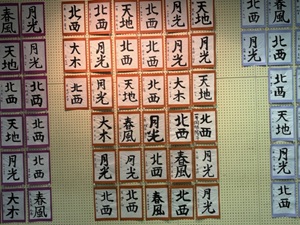 春風 月光 北西 北西 天地 北西 月光 天地 北西 月光
天地 月光 大木 月光 北西 北西 月光 月光 北西
北西 北西 北西 月光 天地 北西 大木 天地 北西
天地 北西 大木 春風 月光 北西 北西 月光
月光 北西 月光 月光 北西 春風 月光 月光
大木 春風 北西 北西 春風 北西 月光 北西